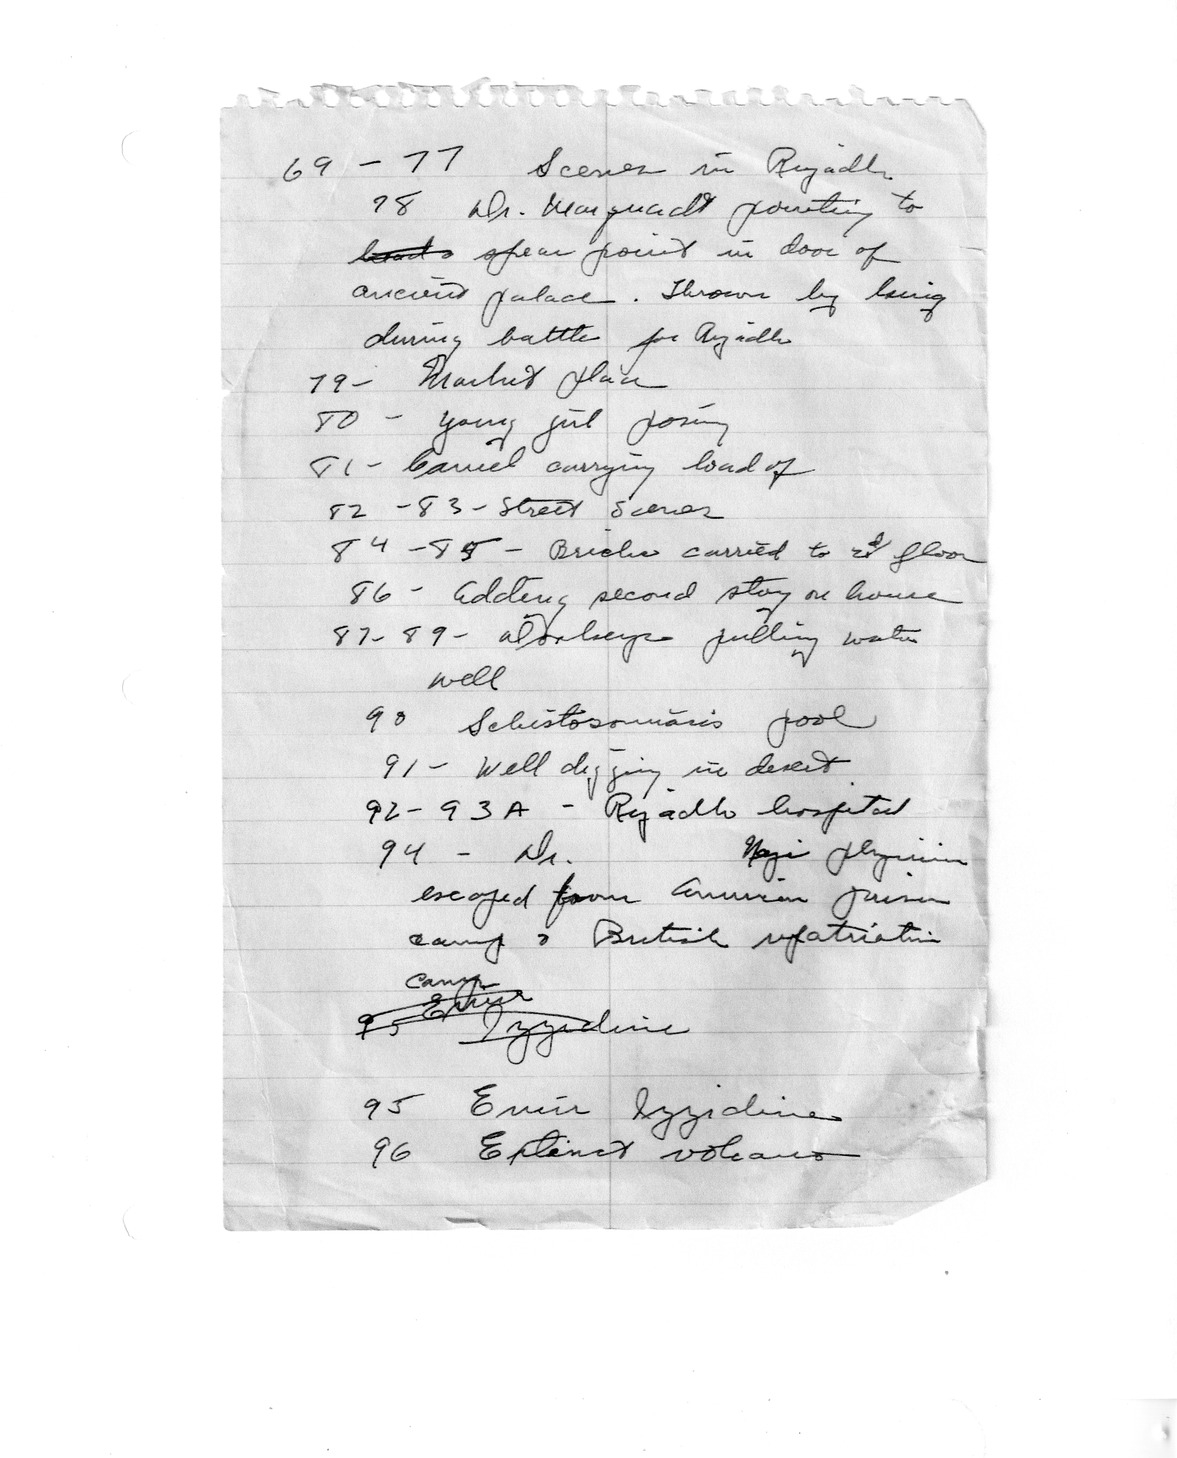 69 - 77 Scenes in Riyadh
78 Dr. Marquardt pointing to
spear point in door of
ancient palace. Thrown by king
during battle for Riyadh
79- Market place
80 - Young girl posing
81- Camel carrying load of
82 -83- Street Scenes
84 -85 - Bricks carried to 2d floor
86 - Adding second story on house
87- 89- pulling water
well
90 Schistosomiasis pool
91- Well digging in desert
92- 93A - Riyadh hospital
94 - Dr. Nazi physician
escaped from American prison
camp & British repatriation
camp
95 Emir Izzidine
95 Emir Izzidine
96 Extinct volcano